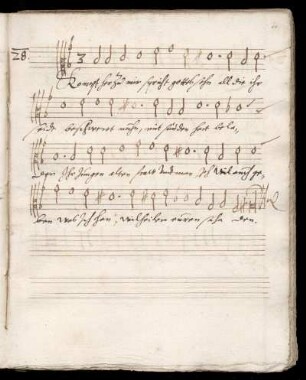 28.
Kompt her zu mir spricht gottes sohn all die ihr
seidt beschweret nuhn, mit sünden hart bela,
den ihr Jungen alten frauw undt man Ich wil euch ge,
ben was Ich han, wil heilen euren schaden.